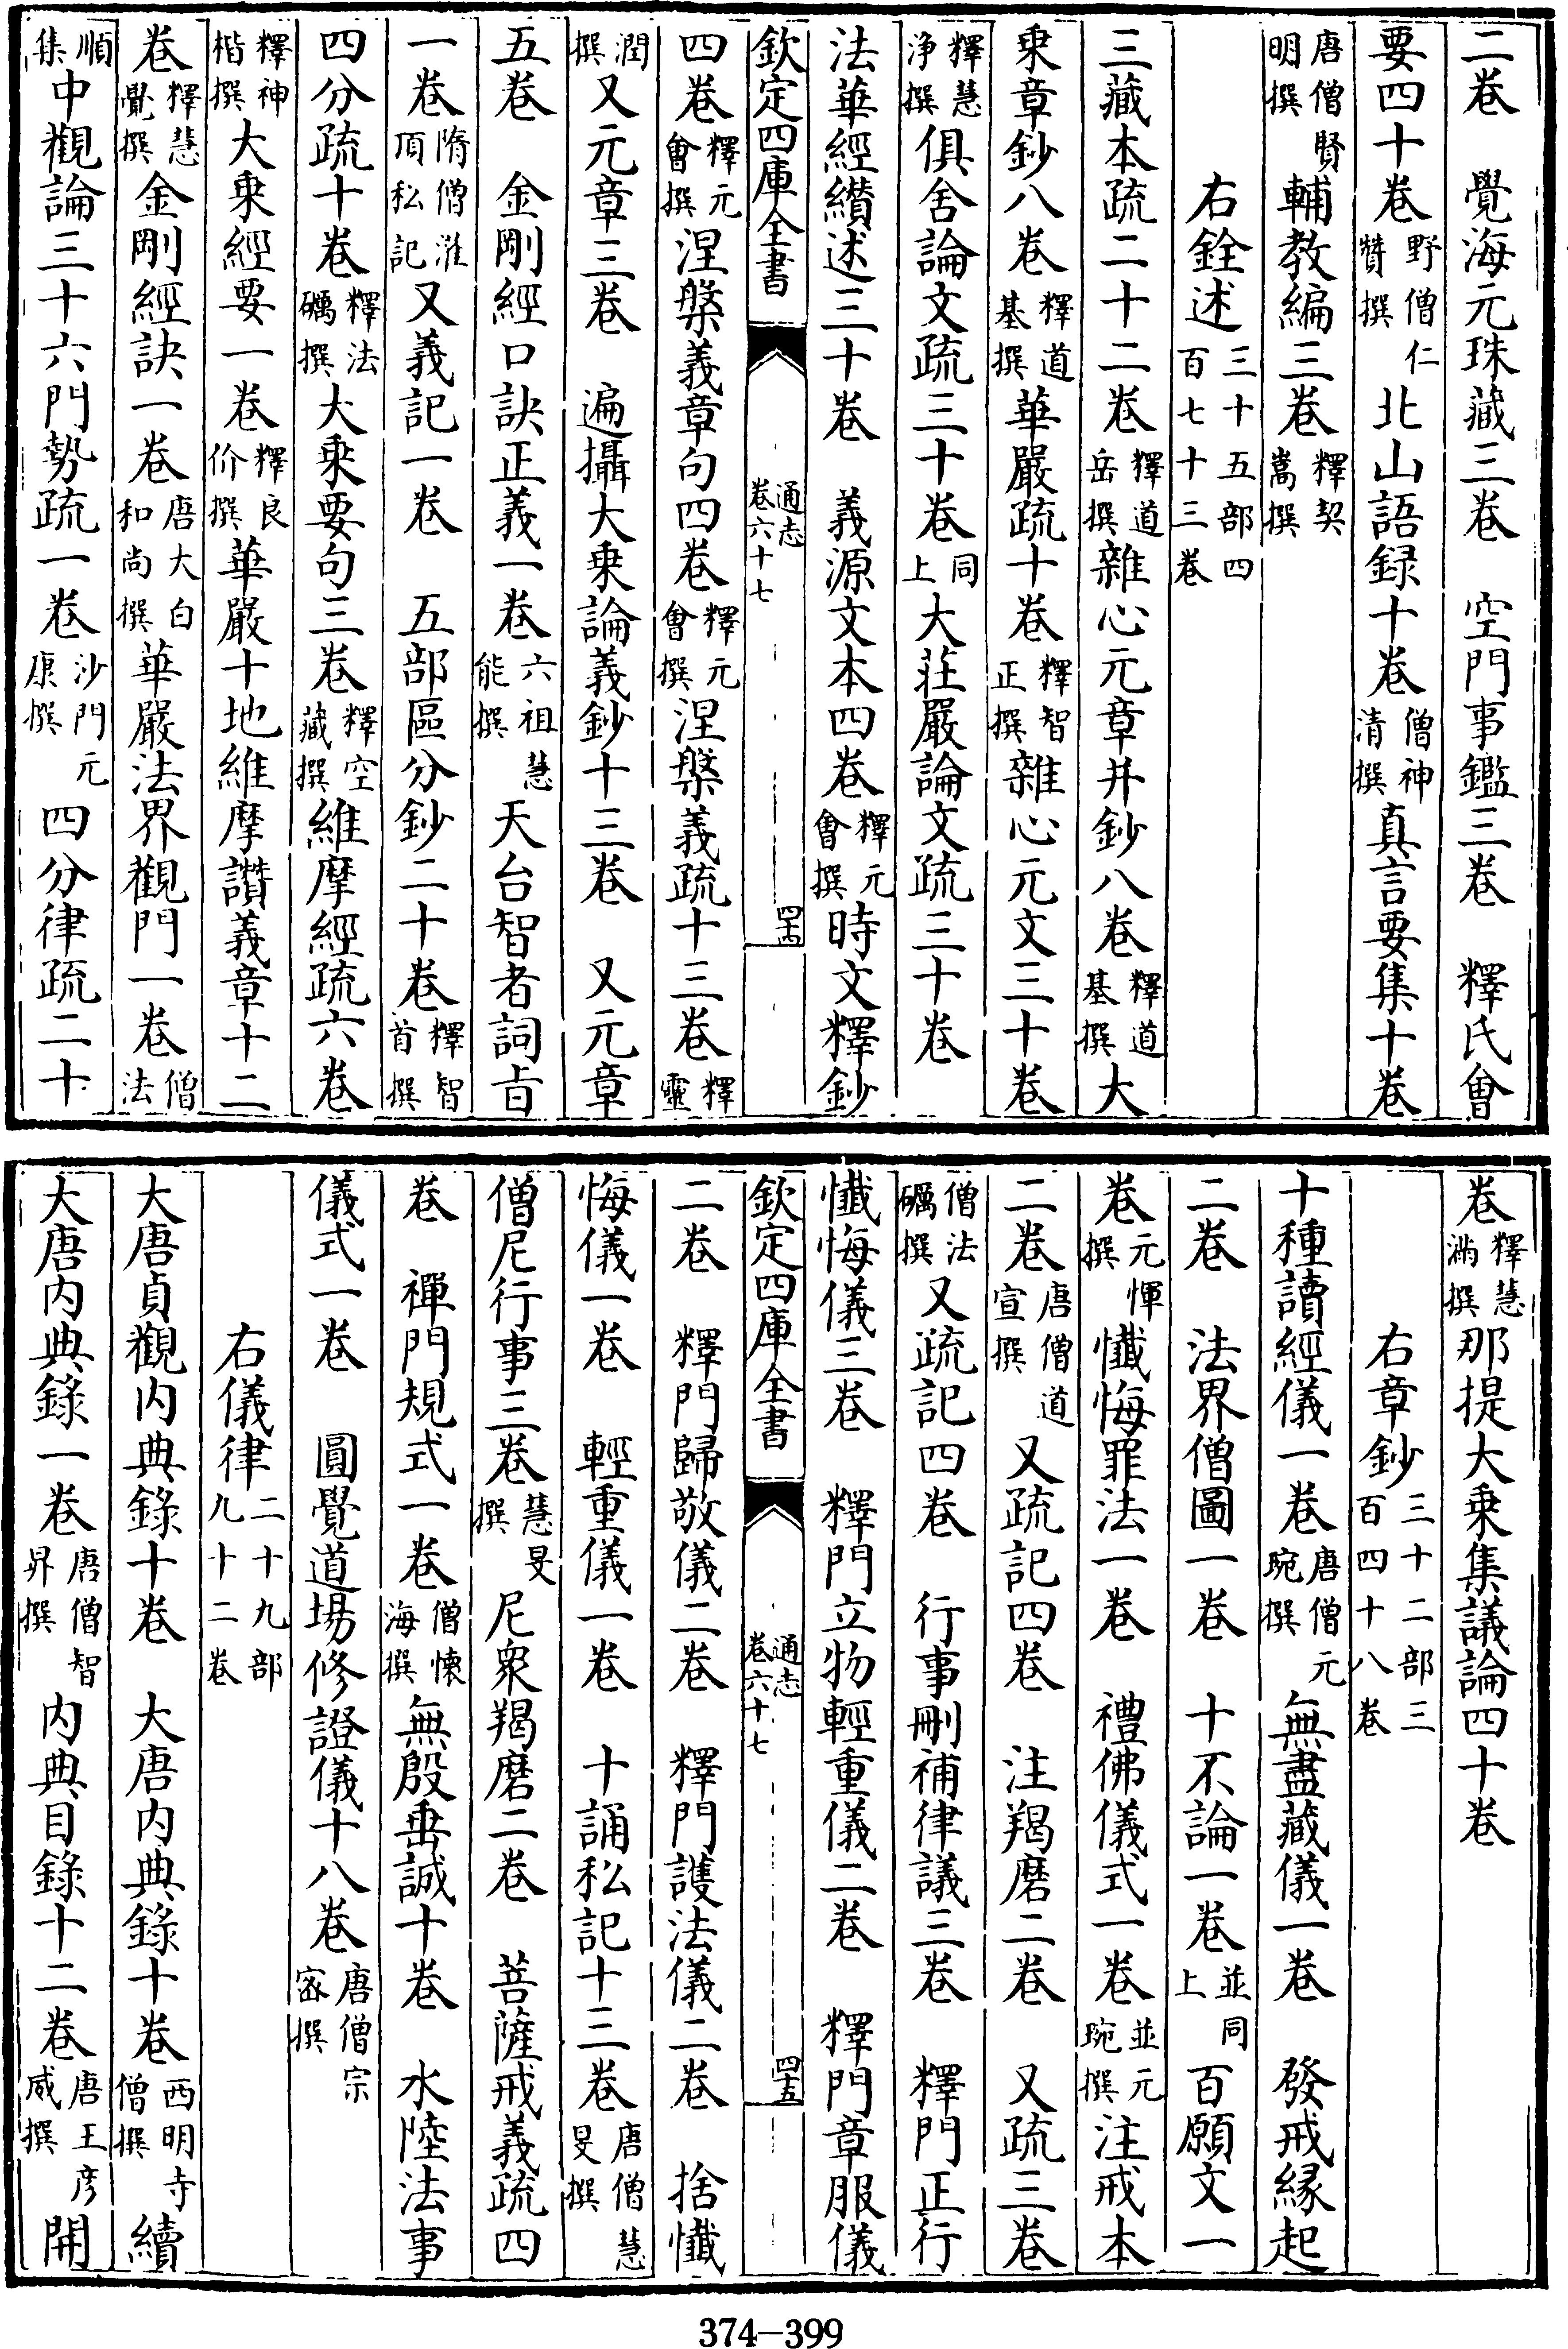 二卷　覺海元珠藏三卷　空門事鑑三卷　釋氏會
要四十卷野僧仁贊撰北山語録十卷僧神清撰真言要集十卷
唐僧賢明撰輔教編三卷釋契嵩撰
右銓述三十五部四百七十三卷
三藏本疏二十二卷釋道岳撰雜心元章并鈔八卷釋道基撰大
乗章鈔八卷釋道基撰華嚴疏十卷釋智正撰雜心元文三十卷
釋慧浄撰俱舍論文疏三十卷同上大莊嚴論文疏三十卷
法華經纉述三十卷　義源文本四卷釋元會撰時文釋鈔
欽定四庫全書　通志卷六十七　四十四
四卷釋元會撰涅槃義章句四卷釋元會撰涅槃義疏十三卷釋靈
潤撰又元章三卷　遍攝大乗論義鈔十三卷　又元章
五卷　金剛經口訣正義一卷六祖慧能撰天台智者詞旨
一卷隋僧灌頂私記又義記一卷　五部區分鈔二十卷釋智首撰
四分疏十卷釋法礪撰大乗要句三卷釋空藏撰維摩經疏六卷
釋神楷撰大乗經要一卷釋良价撰華嚴十地維摩讚義章十二
卷釋慧覺撰金剛經訣一卷唐大白和尚撰華嚴法界觀門一卷僧法
順集中觀論三十六門勢疏一卷沙門元康撰四分律疏二十
卷釋慧滿撰那提大乗集議論四十卷
右章鈔三十二部三百四十八卷
十種讀經儀一卷唐僧元琬撰無盡藏儀一卷　發戒縁起
二卷　法界僧圖一卷　十不論一卷並同上百願文一
卷元惲撰懺悔罪法一卷　禮佛儀式一卷並元琬撰注戒本
二卷唐僧道宣撰又疏記四卷　注羯磨二卷　又疏三卷
僧法礪撰又疏記四卷　行事刪補律議三卷　釋門正行
懺悔儀三卷　釋門立物輕重儀二卷　釋門章服儀
欽定四庫全書　通志卷六十七　四十五
二卷　釋門歸敬儀二卷　釋門護法儀二卷　捨懺
悔儀一卷　輕重儀一卷　十誦私記十三卷唐僧慧旻撰
僧尼行事三卷慧旻撰尼衆羯磨二卷　菩薩戒義疏四
卷　禪門規式一卷僧懐海撰無殷垂誡十卷　水陸法事
儀式一卷　圓覺道場修證儀十八卷唐僧宗密撰
右儀律二十九部九十二卷
大唐貞觀内典錄十卷　大唐内典錄十卷西明寺僧撰續
大唐内典錄一卷唐僧智昇撰内典目錄十二卷唐王彦威撰開
374-399